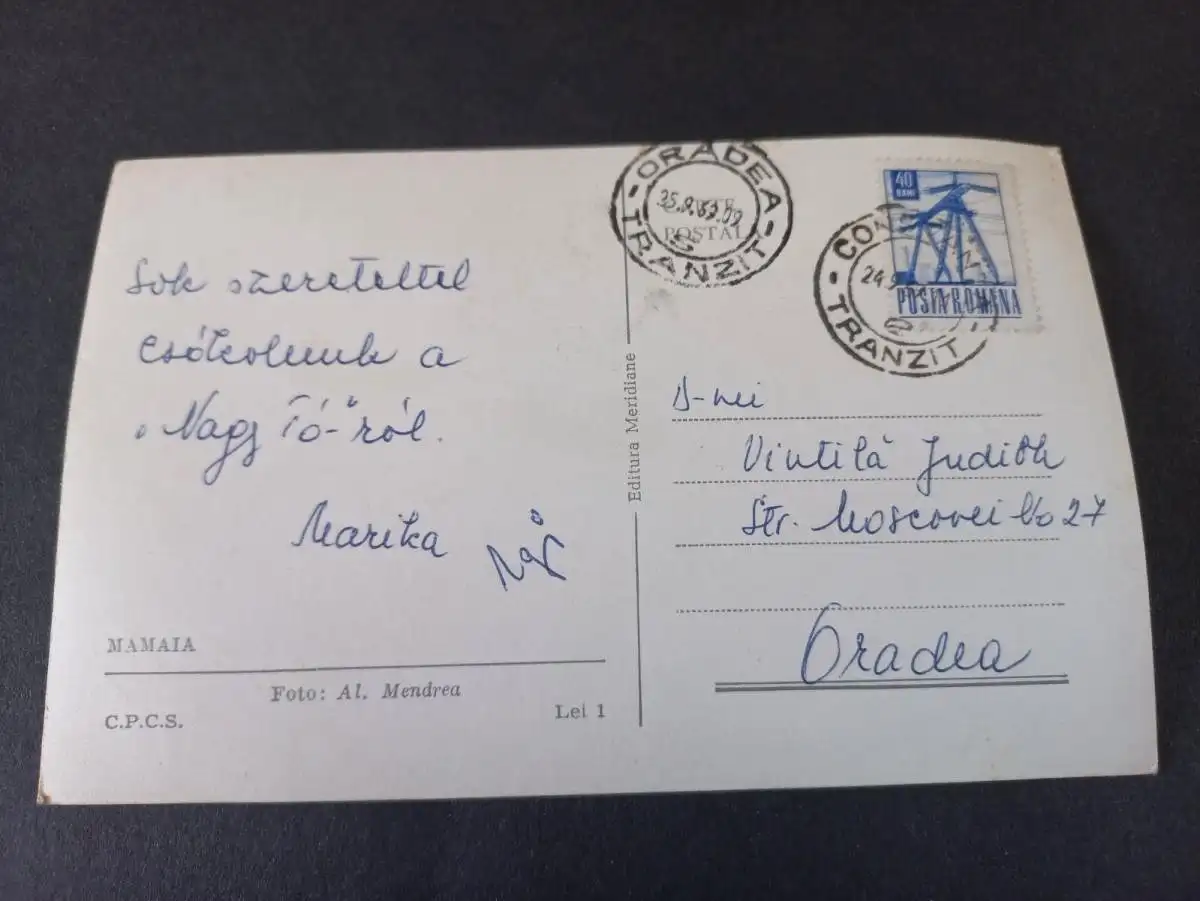 Sok szeretettel
csókolunk a
"Nagy Tó"-ról.
Marika
MAMAIA
Foto: Al. Mendrea
C.P.C.S.
Lei 1
Editura Meridiane
ORADEA
TRANZIT
POSTAL
40
BANI
POSTA ROMANA
24.9
TRANZIT
D-nei
Vintilă Judith
Str. Moscovei No 27
Oradea